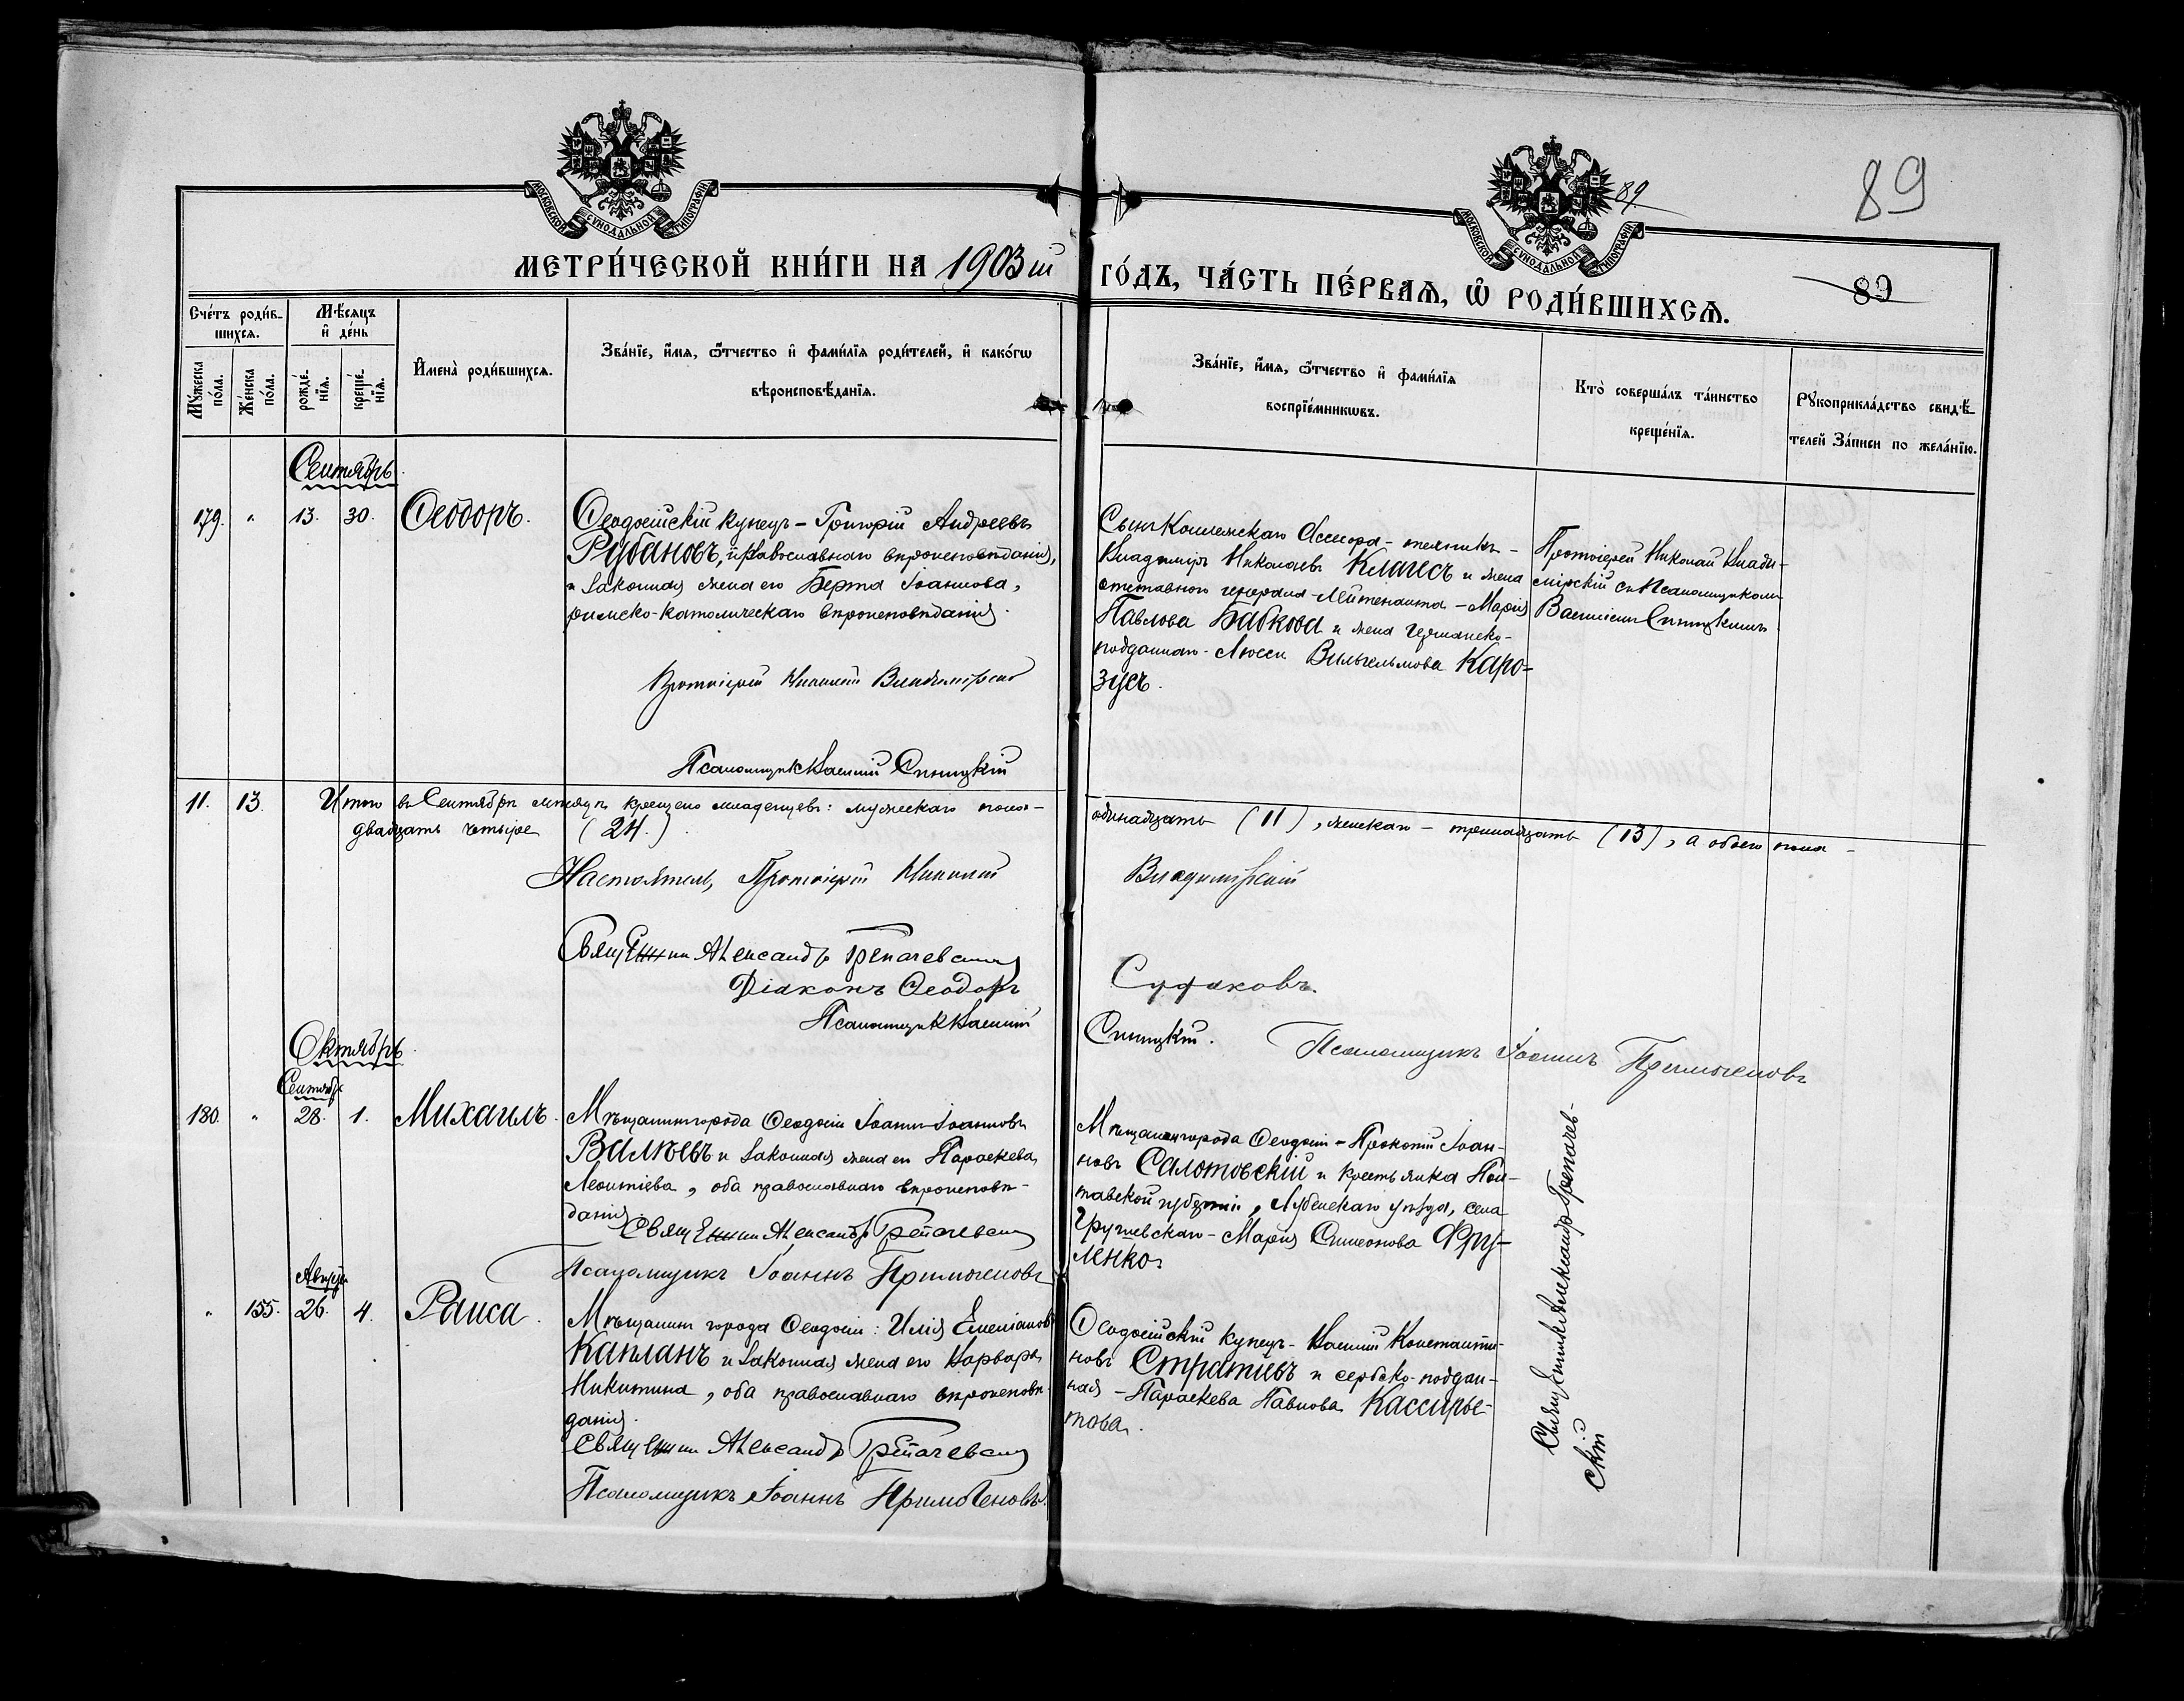 МОСКОВСКОЙ СУНОДАЛЬНОЙ ТИПОГРАФІИ
МОСКОВСКОЙ СУНОДАЛЬНОЙ ТИПОГРАФІИ
89
89
89
МЕТРИ́ЧЕСКОЙ КНИ́ГИ НА 1903й ГО́ДЪ, ЧА́СТЬ ПЕ́РВАѦ, Ѡ҆ РОДИ́ВШИХСѦ.
Сче́тъ роди́в-
шихсѧ.
Мꙋ́жеска по́ла.
Же́нска по́ла.
Мѣ́сѧцъ
и҆ де́нь
рожде́-
нїѧ.
креще́-
нїѧ.
И҆мена̀ роди́вшихсѧ.
Зва́нїе, и҆́мѧ, ѻ҆́тчество и҆ фами́лїѧ роди́телей, и҆ како́гѡ
вѣроисповѣ́данїѧ.
Зва́нїе, и҆́мѧ, ѻ҆́тчество и҆ фами́лїѧ
воспрїе́мникѡвъ.
Кто̀ соверша́лъ та́инство
креще́нїѧ.
Рꙋкоприкла́дство свидѣ́-
телей за́писи по жела́нїю.
Сентябрь
179. " 13. 30. Ѳеодоръ.
Ѳеодосійскій купецъ - Григорій Андреевъ
Рубановъ, православнаго вѣроисповѣданія,
и законная жена его Берта Іоаннова,
римско-католическаго вѣроисповѣданія.
Протоіерей Николай Владимірскій
Псаломщикъ Василій Синицкій
Сынъ Коллежскаго Ассесора - техникъ -
Владиміръ Николаевъ Клаусъ и жена
отставного генералъ-лейтенанта - Марія
Павлова Бабкова и жена германско-
подданнаго - Люси Вильгельмова Каро-
зусъ.
Протоіерей Николай Влади-
мірскій съ Псаломщикомъ
Василіемъ Синицкимъ.
11. 13. Итого въ Сентябрѣ мѣсяцѣ крещено младенцевъ: мужескаго пола - одинадцать (11), женскаго - тринадцать (13), а обоего пола -
двадцать четыре (24.)
Настоятель, Протоіерей Николай Владимірскій
Священникъ Александръ Трепачевскій
Діаконъ Ѳеодоръ Судаковъ.
Псаломщикъ Василій Синицкій. Псаломщикъ Іоаннъ Примоченовъ
Октябрь
Сентябр.
180. " 28. 1. Михаилъ.
Мѣщанинъ города Ѳеодосіи Іоаннъ Іоанновъ
Валѣевъ и законная жена его Параскева
Леонтіева, оба православнаго вѣроисповѣ-
данія.
Священникъ Александръ Трепачевскій
Псаломщикъ Іоаннъ Примоченовъ
Мѣщанинъ города Ѳеодосіи - Прокопій Іоан-
новъ Салотовскій и крестьянка Пол-
тавской губерніи, Лубенскаго уѣзда, села
- Марія Симеонова Фру-
ленко.
Август
" 155. 26. 4. Раиса.
Мѣщанинъ города Ѳеодосіи: Илія Емеліановъ
Капланъ и законная жена его Варвара
Никитина, оба православнаго вѣроисповѣ-
данія.
Священникъ Александръ Трепачевскій
Псаломщикъ Іоаннъ Примоченовъ.
Ѳеодосійскій купецъ - Василій Константи-
новъ Стратіевъ и сербско-поддан-
ная - Параскева Павлова Кассирье-
това.
Священникъ Александръ Трепачев-
скій